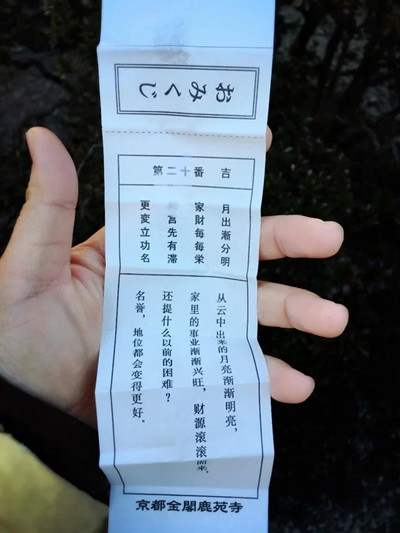 おみくじ
第二十番 吉
月出漸分明
家財毎毎栄
言先有滞
更変立功名
从云中出来的月亮渐渐明亮，
家里的事业渐渐兴旺，财源滚滚而来，
还提什么以前的困难？
名誉，地位都会变得更好。
京都金閣鹿苑寺